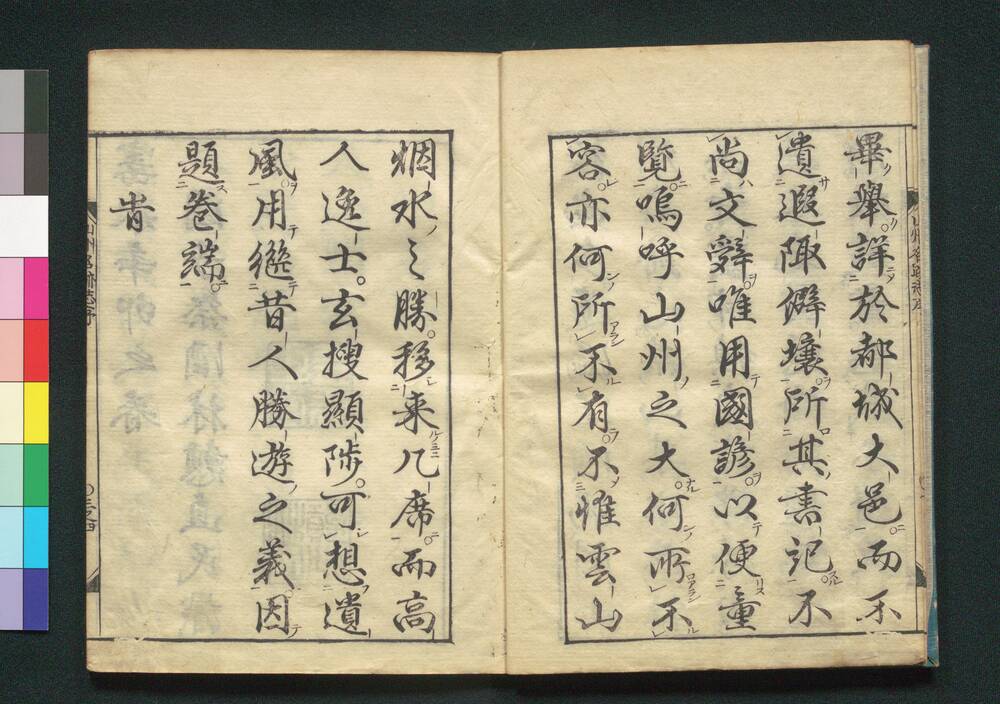 畢舉詳於都城大邑而不
遺遐陬僻壤所其書記不
尚文辭唯用國諺以便童
覽嗚呼山州之大何所不
容亦何所不有不惟雲山
烟水之勝移来几席而高
人逸士玄搜顯陟可想遺
風用繼昔人勝遊之義因
題卷端
旹